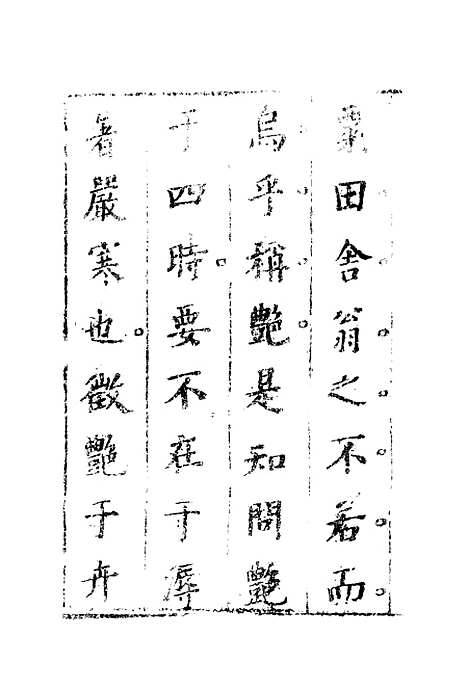 田舍翁之。不。若。而。
烏。乎。稱。艷。是知問艷
于四時。要不在于溽
暑嚴寒也。徵艷于卉